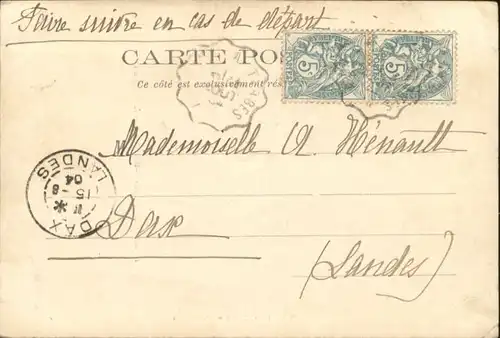 Faire suivre en cas de départ
CARTE POS
Ce côté est exclusivement rés
5 5
Mademoiselle A Hénault
Dax
(Landes)
DAX
LANDES
15 -8
04